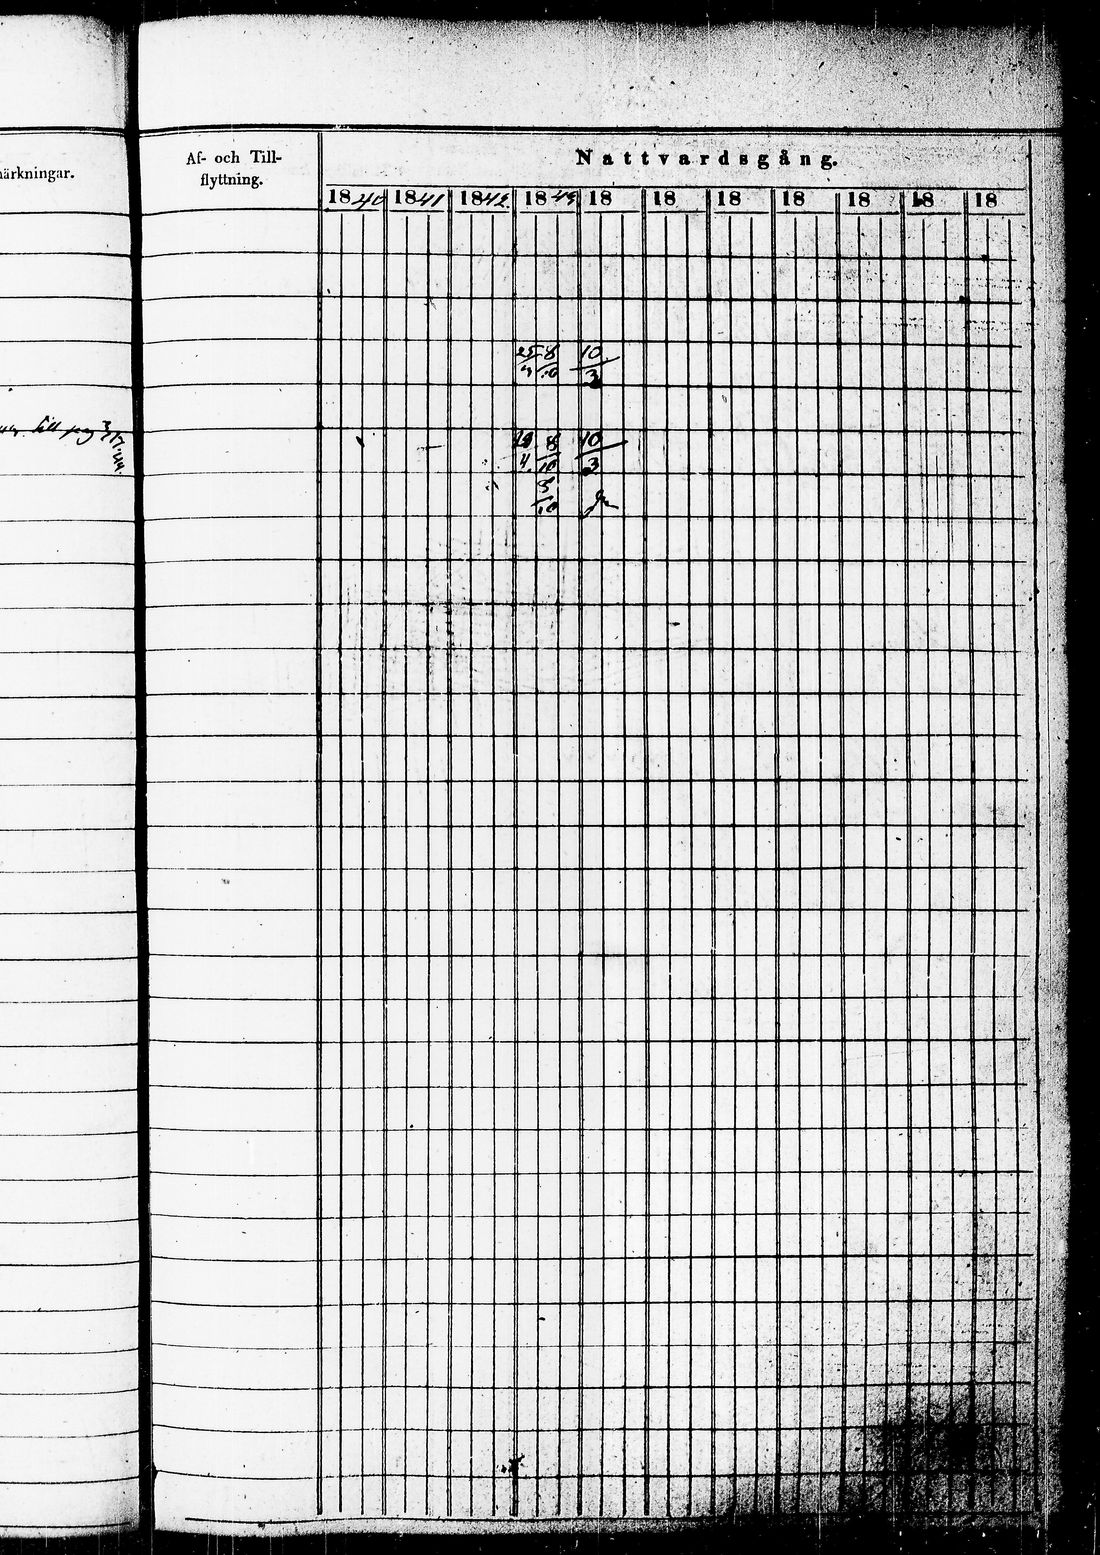 ärkningar.
Af- och Till-
flyttning.
Nattvardsgång.
1840 1841 1842 1843 18 18 18 18 18 18 18
25 8 10
4 10 3
till
8 10
4. 10 3
3
10